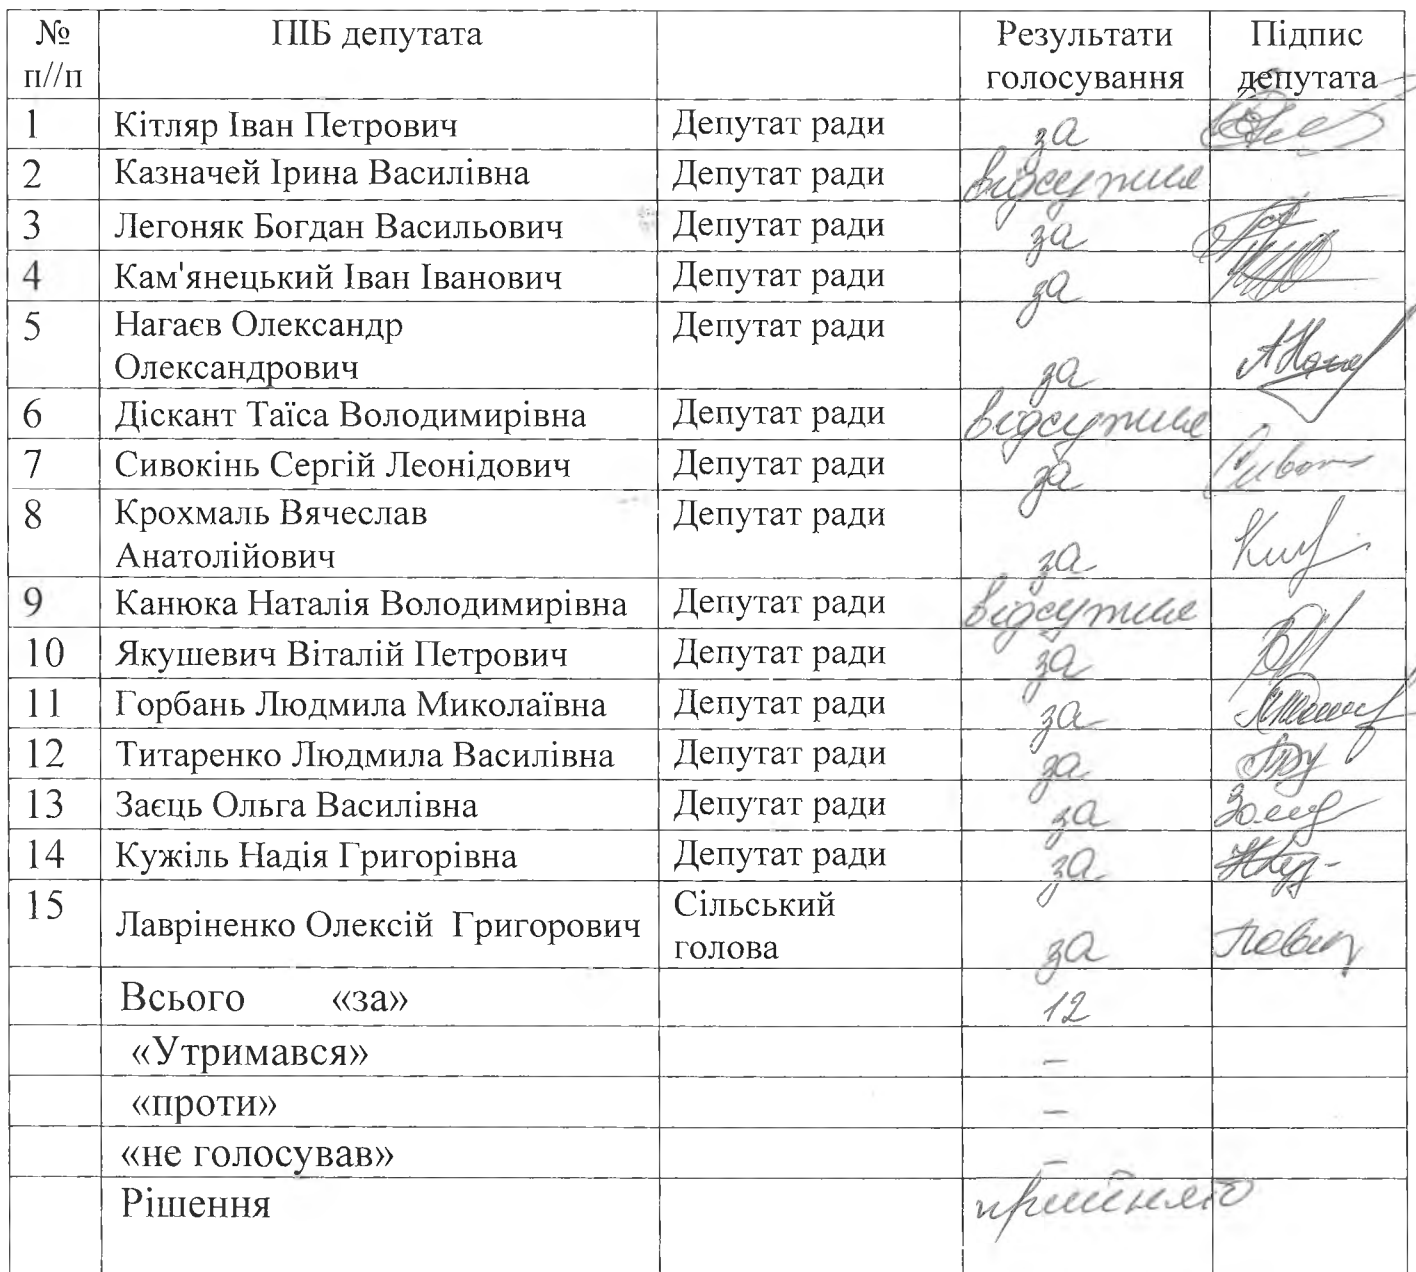 № п//п ПІБ депутата Результати голосування Підпис депутата
1 Кітляр Іван Петрович Депутат ради за
2 Казначей Ірина Василівна Депутат ради відсутня
3 Легоняк Богдан Васильович Депутат ради за
4 Кам'янецький Іван Іванович Депутат ради за
5 Нагаєв Олександр Депутат ради
Олександрович за
6 Діскант Таїса Володимирівна Депутат ради відсутня
7 Сивокінь Сергій Леонідович Депутат ради за
8 Крохмаль Вячеслав Депутат ради
Анатолійович за
9 Канюка Наталія Володимирівна Депутат ради відсутня
10 Якушевич Віталій Петрович Депутат ради за
11 Горбань Людмила Миколаївна Депутат ради за
12 Титаренко Людмила Василівна Депутат ради за
13 Заєць Ольга Василівна Депутат ради за
14 Кужіль Надія Григорівна Депутат ради за
15 Лавріненко Олексій Григорович Сільський голова за
Всього «за» 12
«Утримався» –
«проти» –
«не голосував» –
Рішення прийнято